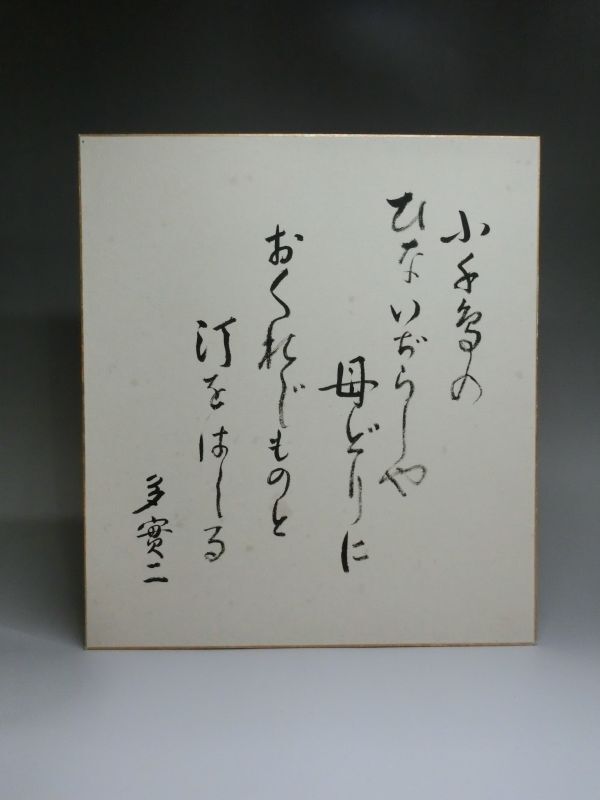 小千鳥の
ひないぢらしや
母どりに
おくれじものと
汀をはしる
多實二